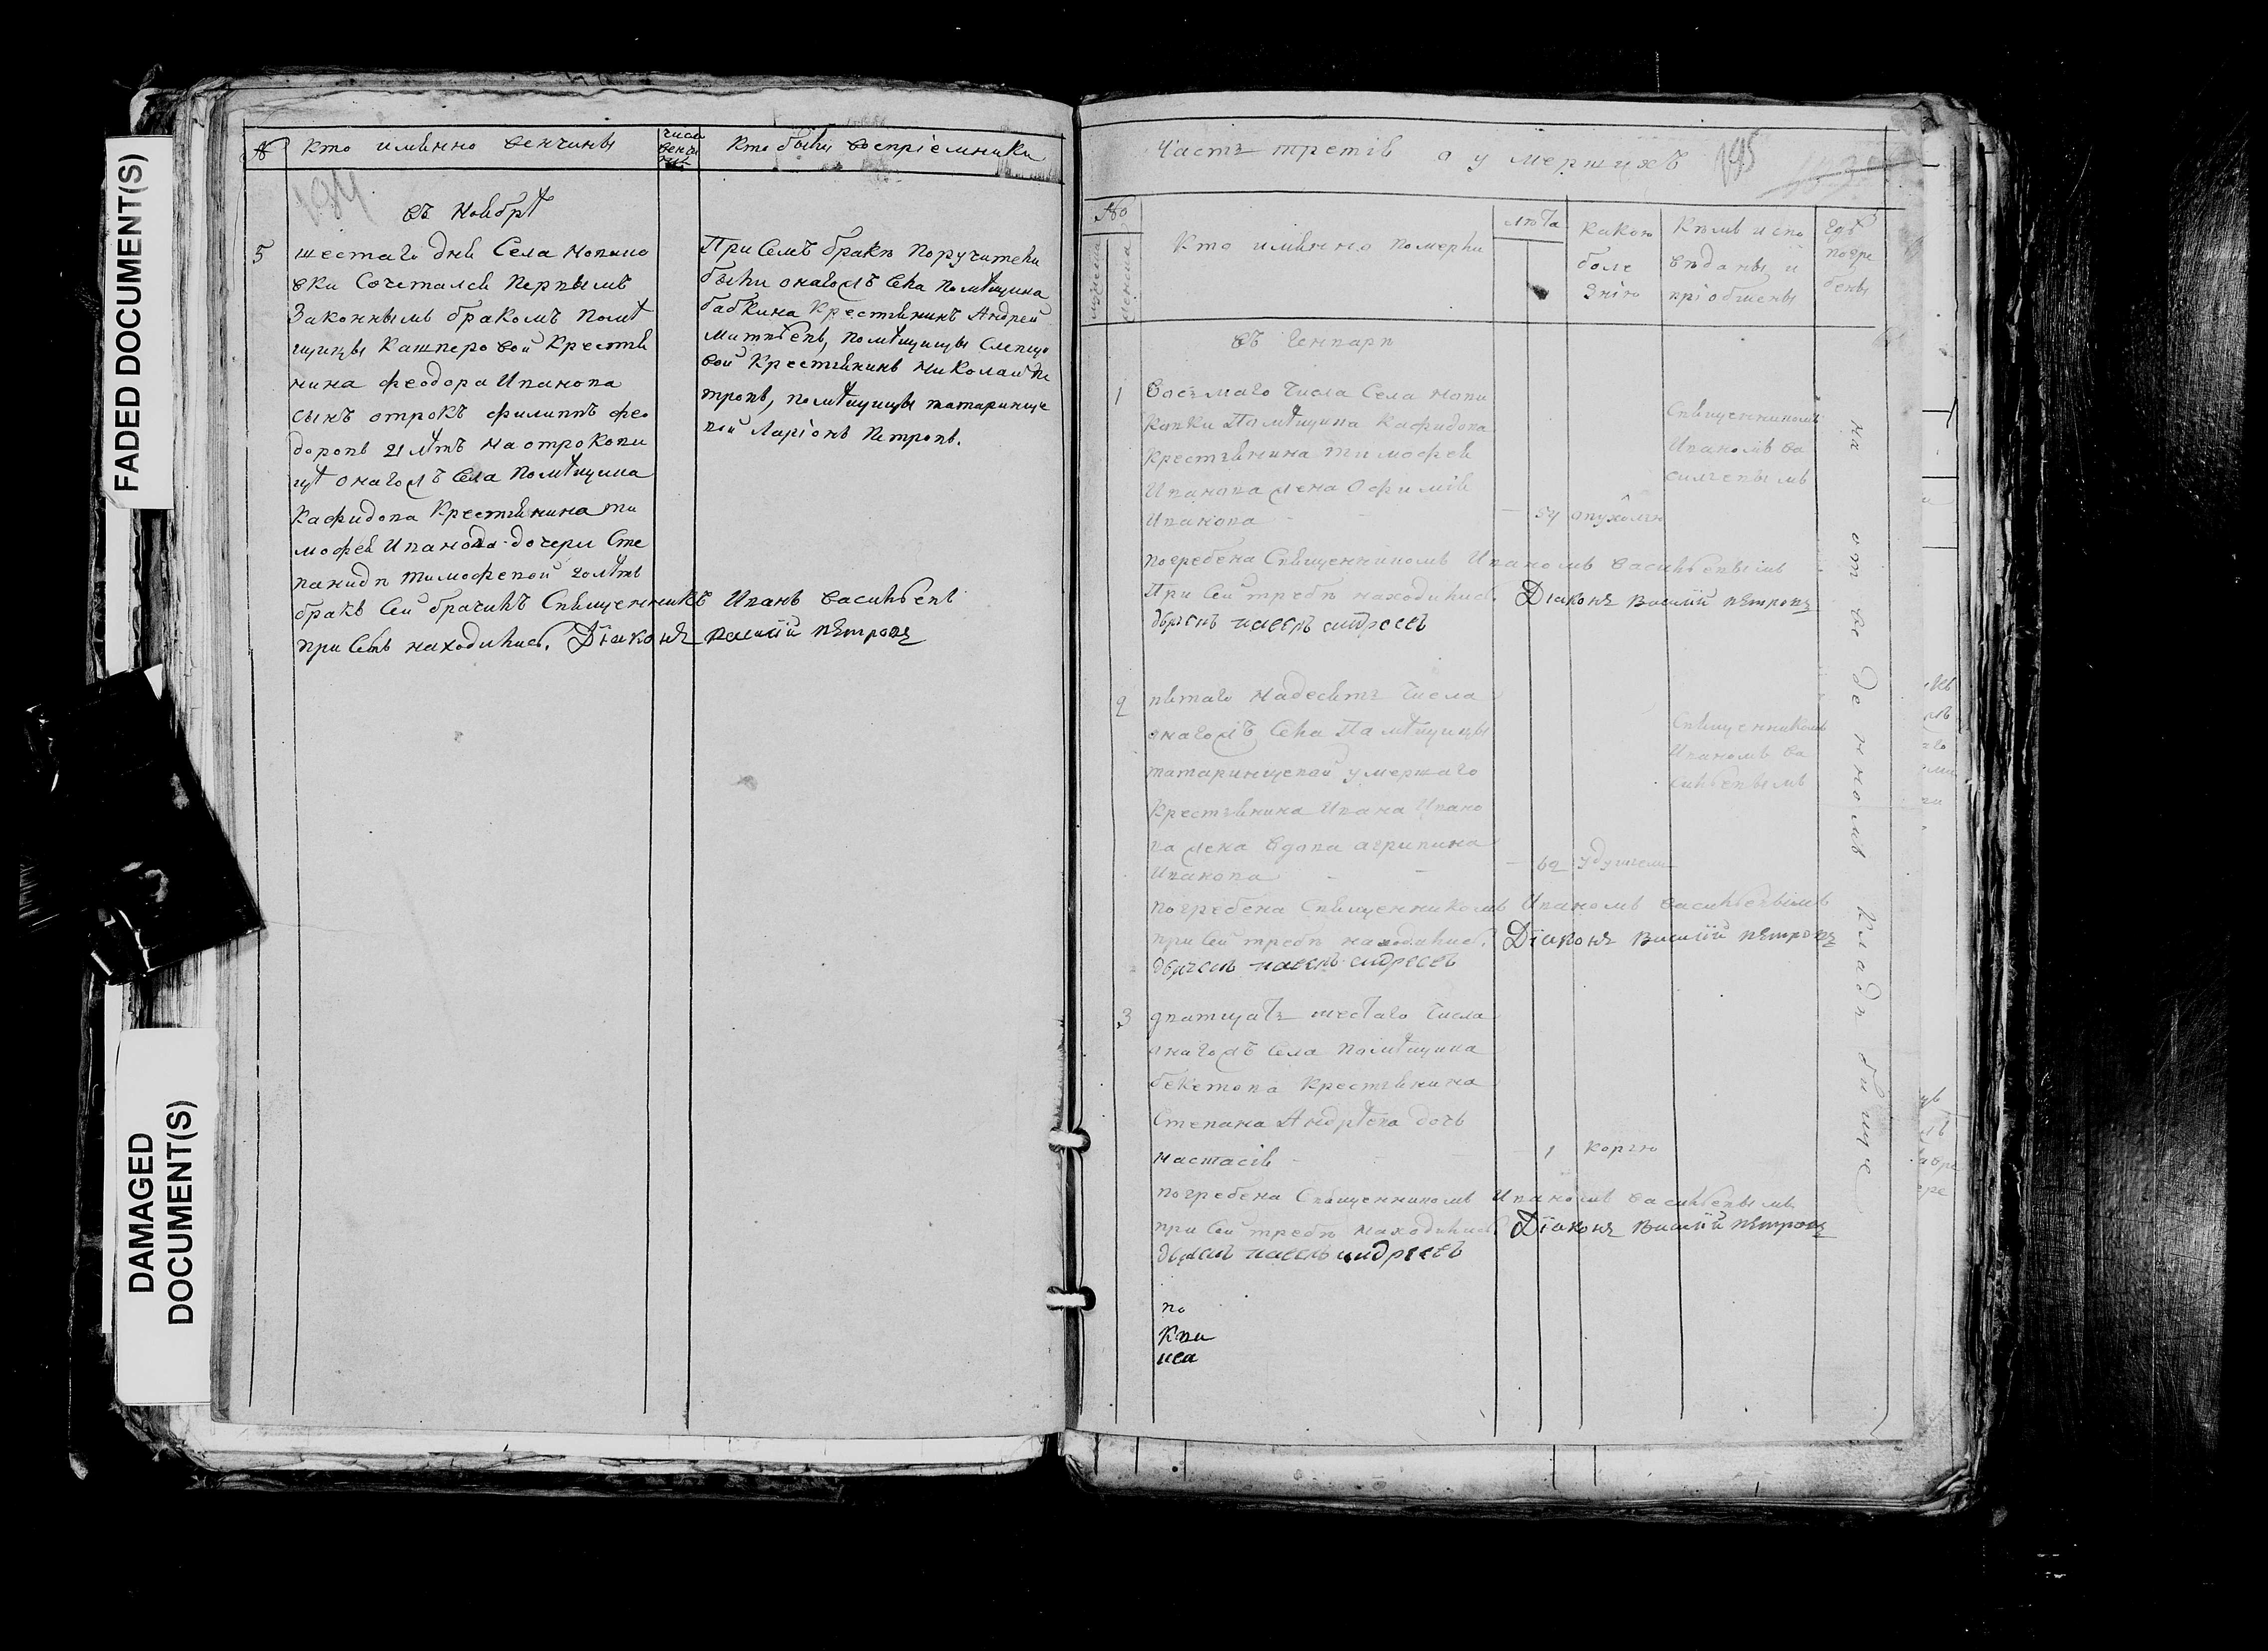 FADED DOCUMENT(S)
DAMAGED DOCUMENT(S)
№ Кто имянно венчины числ венч Кто были восприемники
194
въ Ноябрѣ
5 шестаго дня Села Нопико
вки Сочетался первымъ
Законнымъ бракомъ Помѣ
щицы Кашперовой Крестья
нина Феодора Иванова
сынъ отрокъ филиппъ фео
доровъ 21 лѣтъ на отрокови
цѣ онагожъ Села Помѣщика
Кафидова Крестьянина ти
мофея Иванова дочери Сте
паниды тимофеевой 20 лѣтъ
бракъ Сей брачилъ Священникъ Иванъ васильевъ
при Семъ находились. Діаконъ василій петровъ
При Семъ бракѣ Поручители
были онагожъ Села помѣщика
бабкина Крестьянинъ Андрей
матвѣевъ, помѣщицы Слепцо
вой Крестьянинъ николай пе
тровъ, помѣщицы татаринце
вой Ларіонъ Петровъ.
Часть третія о умершихъ 195
№ Кто имянно померли лѣта какою боле знію Кѣмъ испо вѣданы и пріобщены гдѣ погре бены
въ Генваръ
1 Восьмаго числа Села нови
ковки Памѣщика Кафидова
крестьянина тимофея
Иванова жена Офимія
Иванова 54 опухолью
Священникомъ
Иваномъ ва
сильевымъ
погребена Священникомъ Иваномъ васильевымъ
При Сей требѣ находились. Діаконъ Василій петровъ
дьячекъ павелъ андреевъ
2 пятаго надесять числа
онагожъ Села Памѣщицы
татаринцевой умершаго
Крестьянина Ивана Ивано
ва жена вдова агрипина
Иванова 62 удушьем
Священникомъ
Иваномъ ва
сильевымъ
погребена Священникомъ Иваномъ васильевымъ
при Сей требѣ находились. Діаконъ Василій петровъ
дьячекъ павелъ андреевъ
3 дватцать шестаго числа
онагожъ Села помѣщика
бекетова Крестьянина
Степана Андрѣева дочь
настасія 1 корью
погребена Священникомъ Иваномъ васильевымъ
при Сей требѣ находились Діаконъ Василій петровъ
дьячекъ павелъ андреевъ
на отведенномъ кладбище
по
Кви
цеа